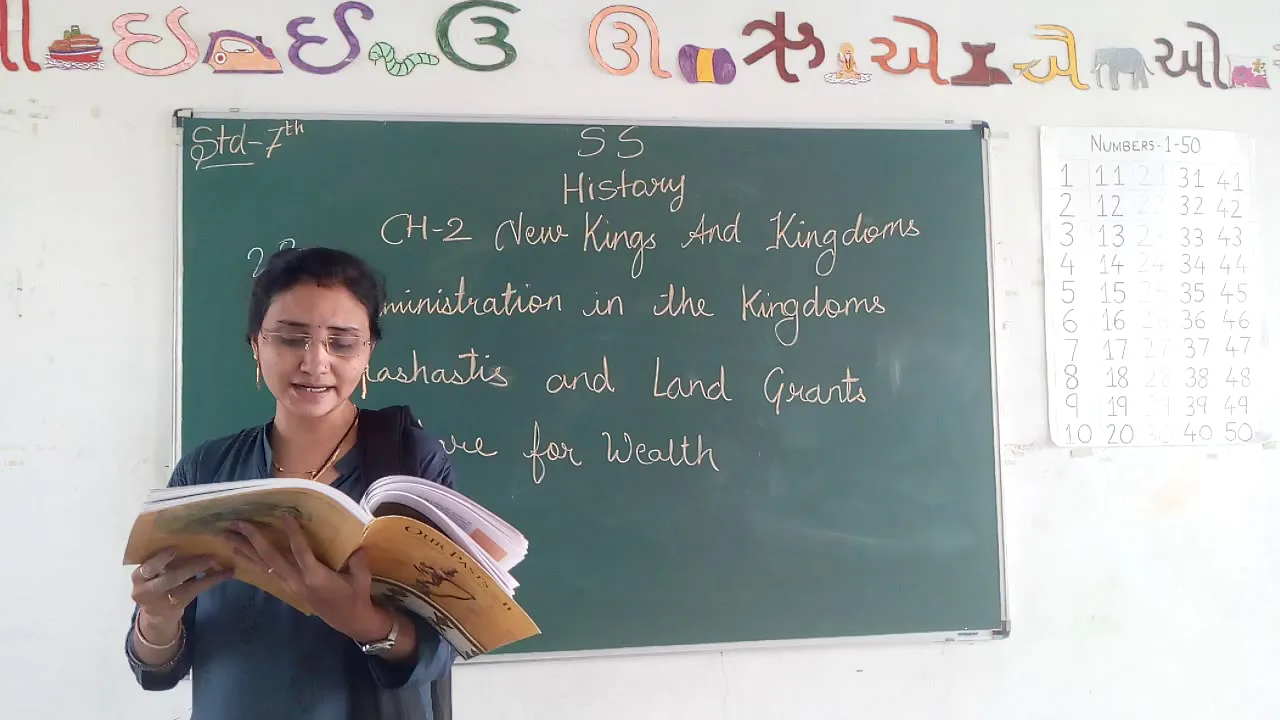 ઇ ઈ ઉ ઊ ઋ એ ઐ ઓ
Std-7th
SS
Histary
CH-2 New Kings And Kingdoms
ministration in the Kingdoms
rashastis and Land Grants
for Wealth
OUR PASTS II
NUMBERS-1-50
1 11 21 31 41
2 12 22 32 42
3 13 23 33 43
4 14 24 34 44
5 15 25 35 45
6 16 26 36 46
7 17 27 37 47
8 18 28 38 48
9 19 29 39 49
10 20 30 40 50